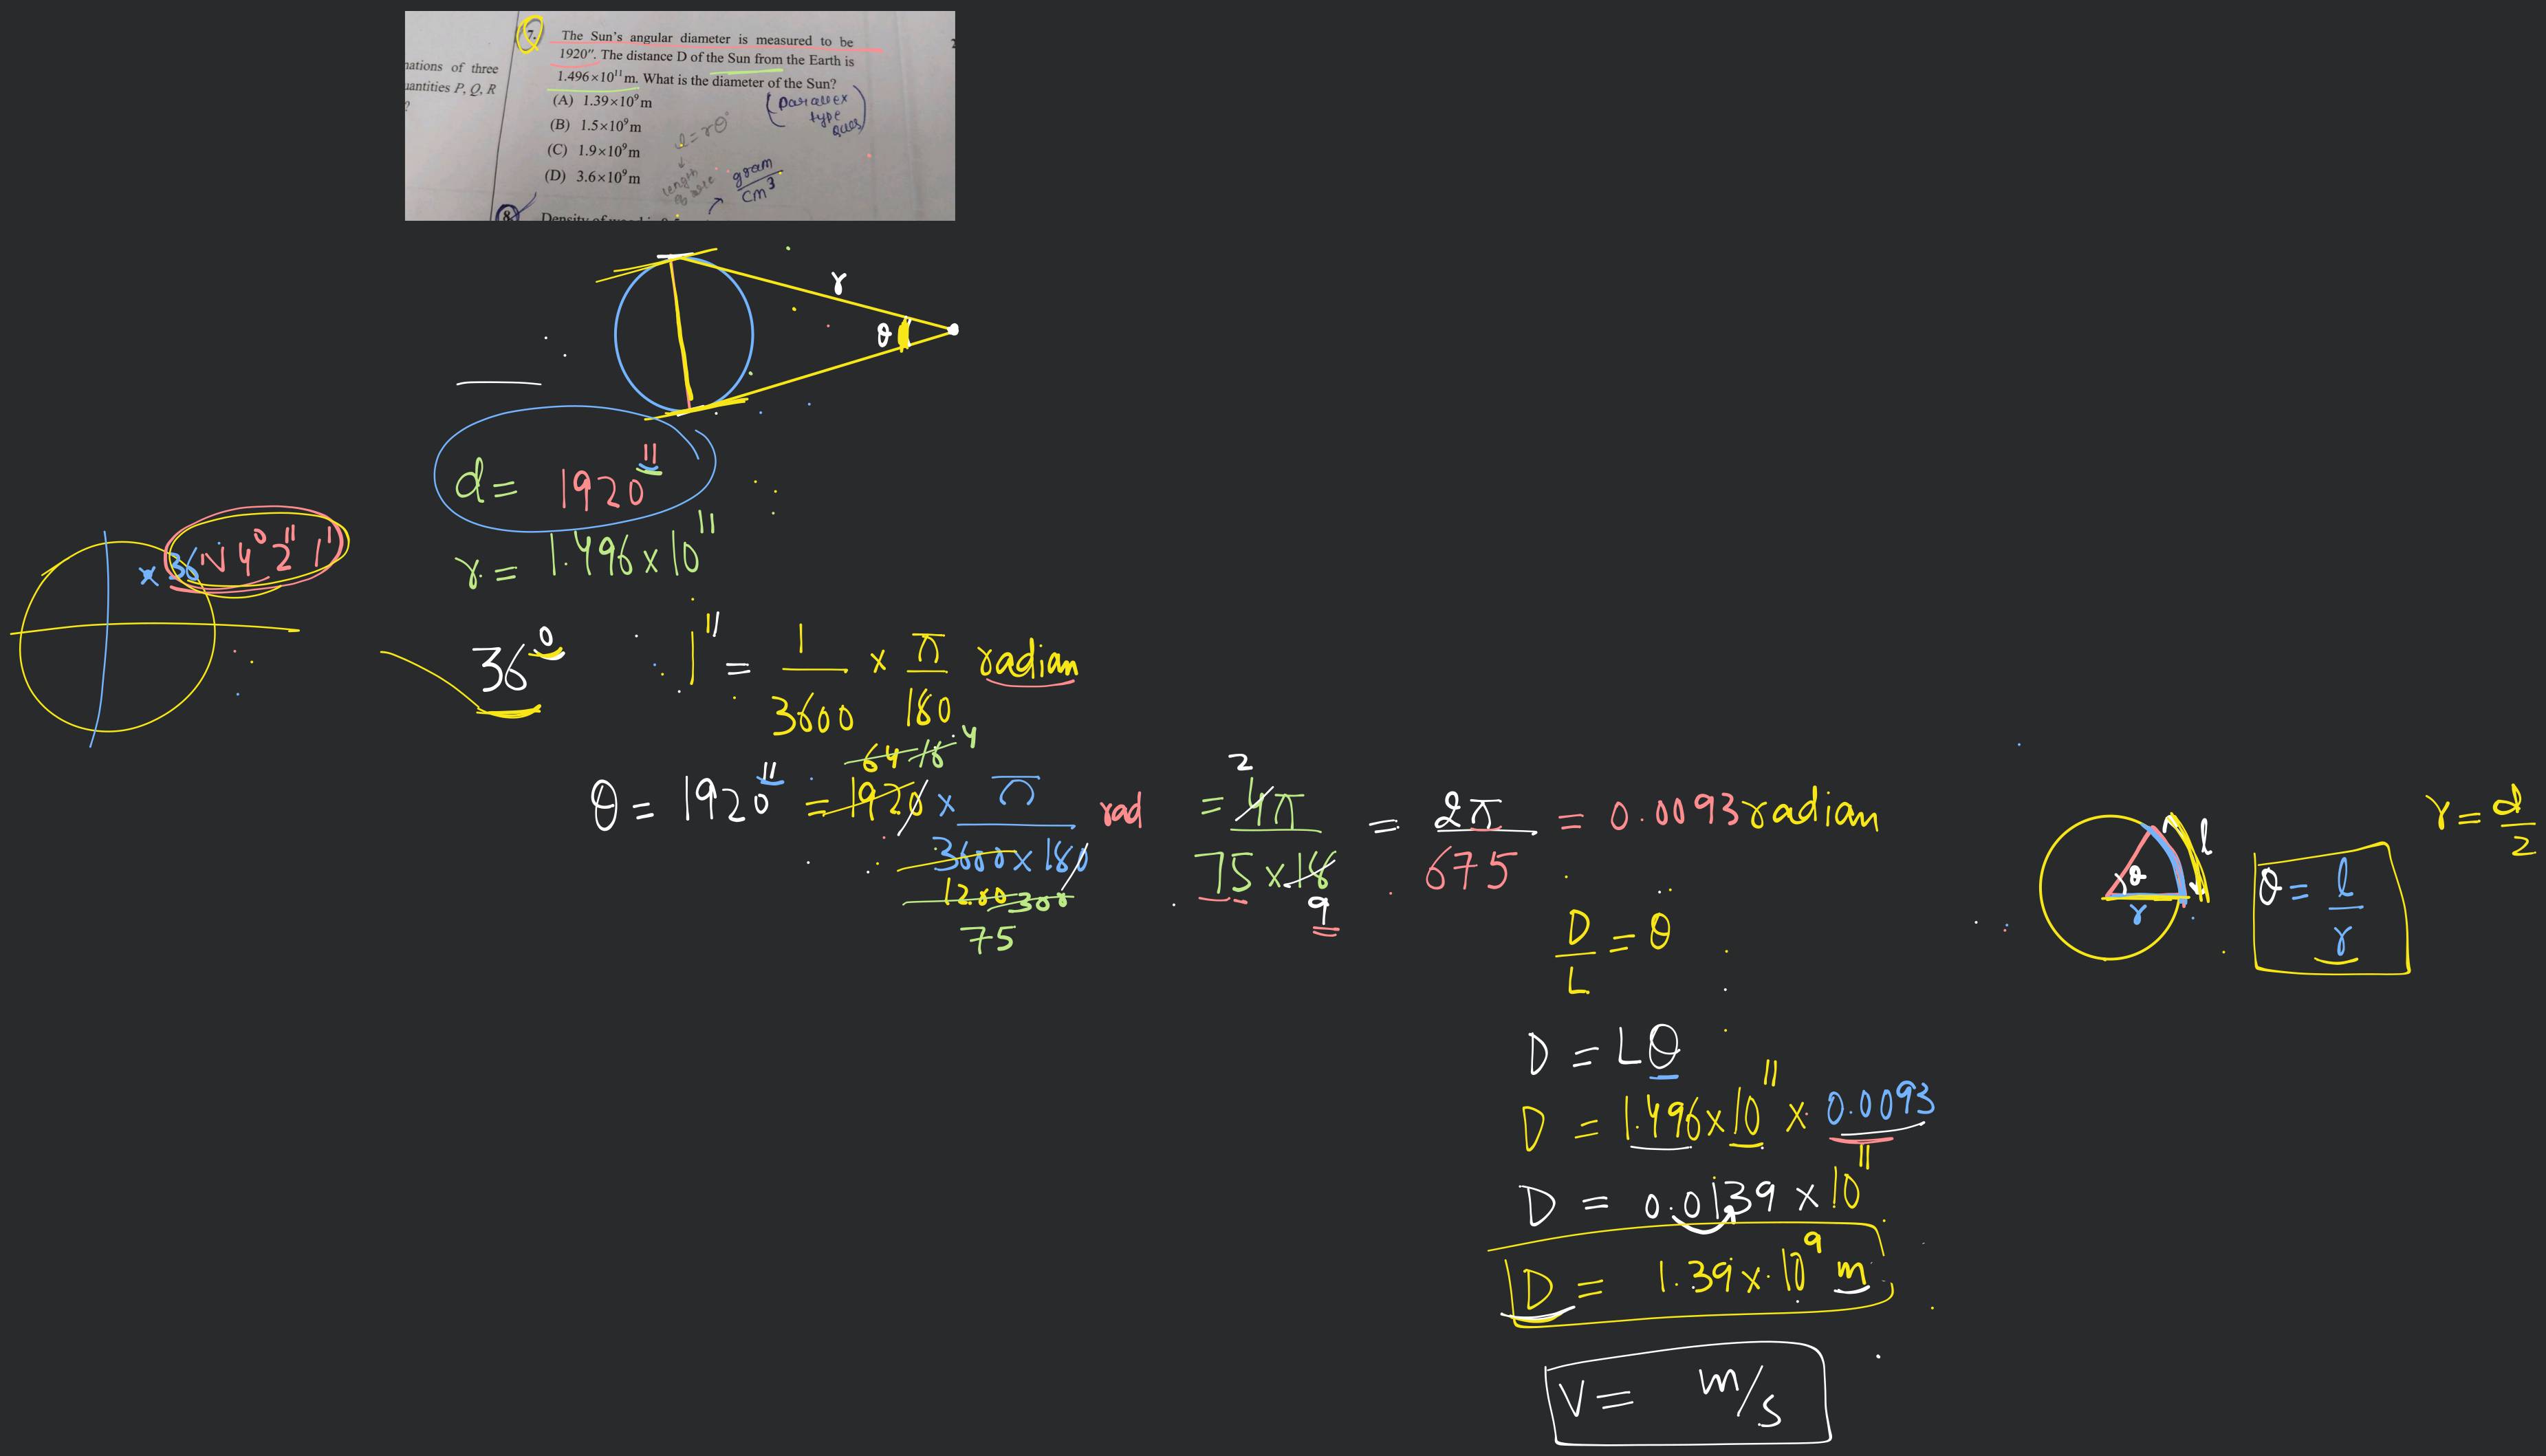 nations of three
uantities P, Q, R
?
7. The Sun's angular diameter is measured to be
1920″. The distance D of the Sun from the Earth is
1.496×10¹¹m. What is the diameter of the Sun?
(A) 1.39×10⁹m
(B) 1.5×10⁹m
(C) 1.9×10⁹m
(D) 3.6×10⁹m
(Parallex
type
Ques)
l = rθ
length
gram/cm³
8. Density of wood is
r
θ
d = 1920″
r = 1.496 × 10¹¹
× 36 N 4° 2″ 1′
36°
1″ = 1/3600 × π/180 radian
64 16 4
θ = 1920″ = 1920 × π/(3600 × 180) rad = 4π/(75 × 18) = 2π/675 = 0.0093 radian
1200 300
75
2
9
θ
r
l
θ = l/r
r = d/2
D/L = θ
D = Lθ
D = 1.496 × 10¹¹ × 0.0093
D = 0.0139 × 10¹¹
D = 1.39 × 10⁹ m
V = m/s